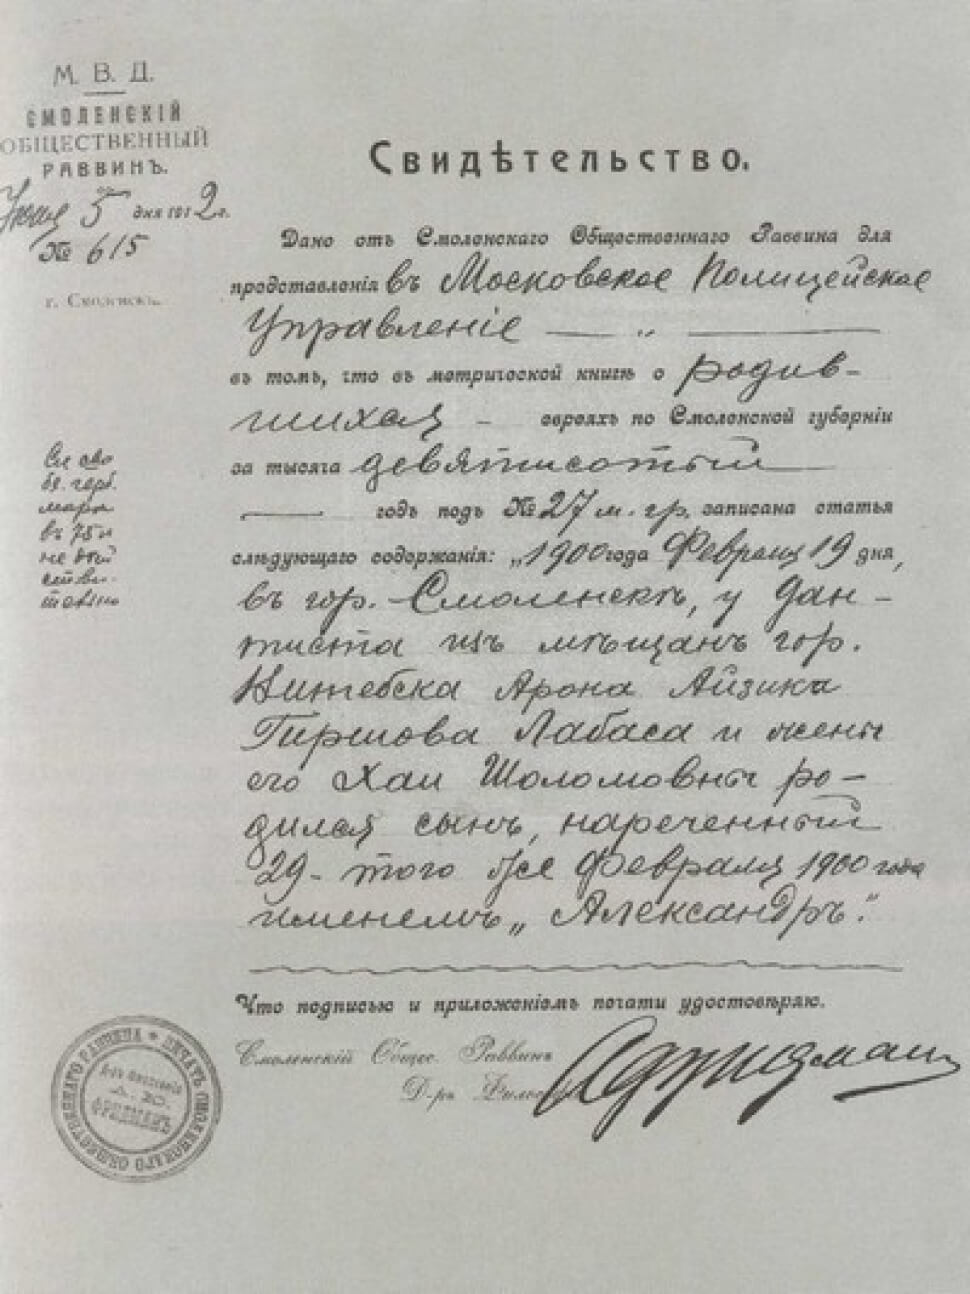 М. В. Д.
СМОЛЕНСКІЙ
ОБЩЕСТВЕННЫЙ
РАВВИНЪ.
5 дня 1912 г.
№ 615
г. Смоленскъ.
Свидѣтельство.
Дано отъ Смоленскаго Общественнаго Раввина для
представленія въ Московское Полицейское
Управленіе — „ —
въ томъ, что въ метрической книгѣ о родив-
шихся — евреяхъ по Смоленской губерніи
за тысяча девятисотый —
— годъ подъ № 27 м. гр. записана статья
слѣдующаго содержанія: „1900 года Февраля 19 дня,
въ гор. Смоленскѣ, у дан-
тиста изъ мѣщанъ гор.
Витебска Арона Айзика
Гиршова Лабаса и жены
его Хаи Шоломовны ро-
дился сынъ, нареченный
29 - того же Февраля 1900 года
именемъ „Александръ".
Что подписью и приложеніемъ печати удостовѣряю.
Смоленскій Общес. Раввинъ
Д-ръ
ПЕЧАТЬ СМОЛЕНСКАГО ОБЩЕСТВЕННАГО РАВВИНА
ФРИДМАНЪ